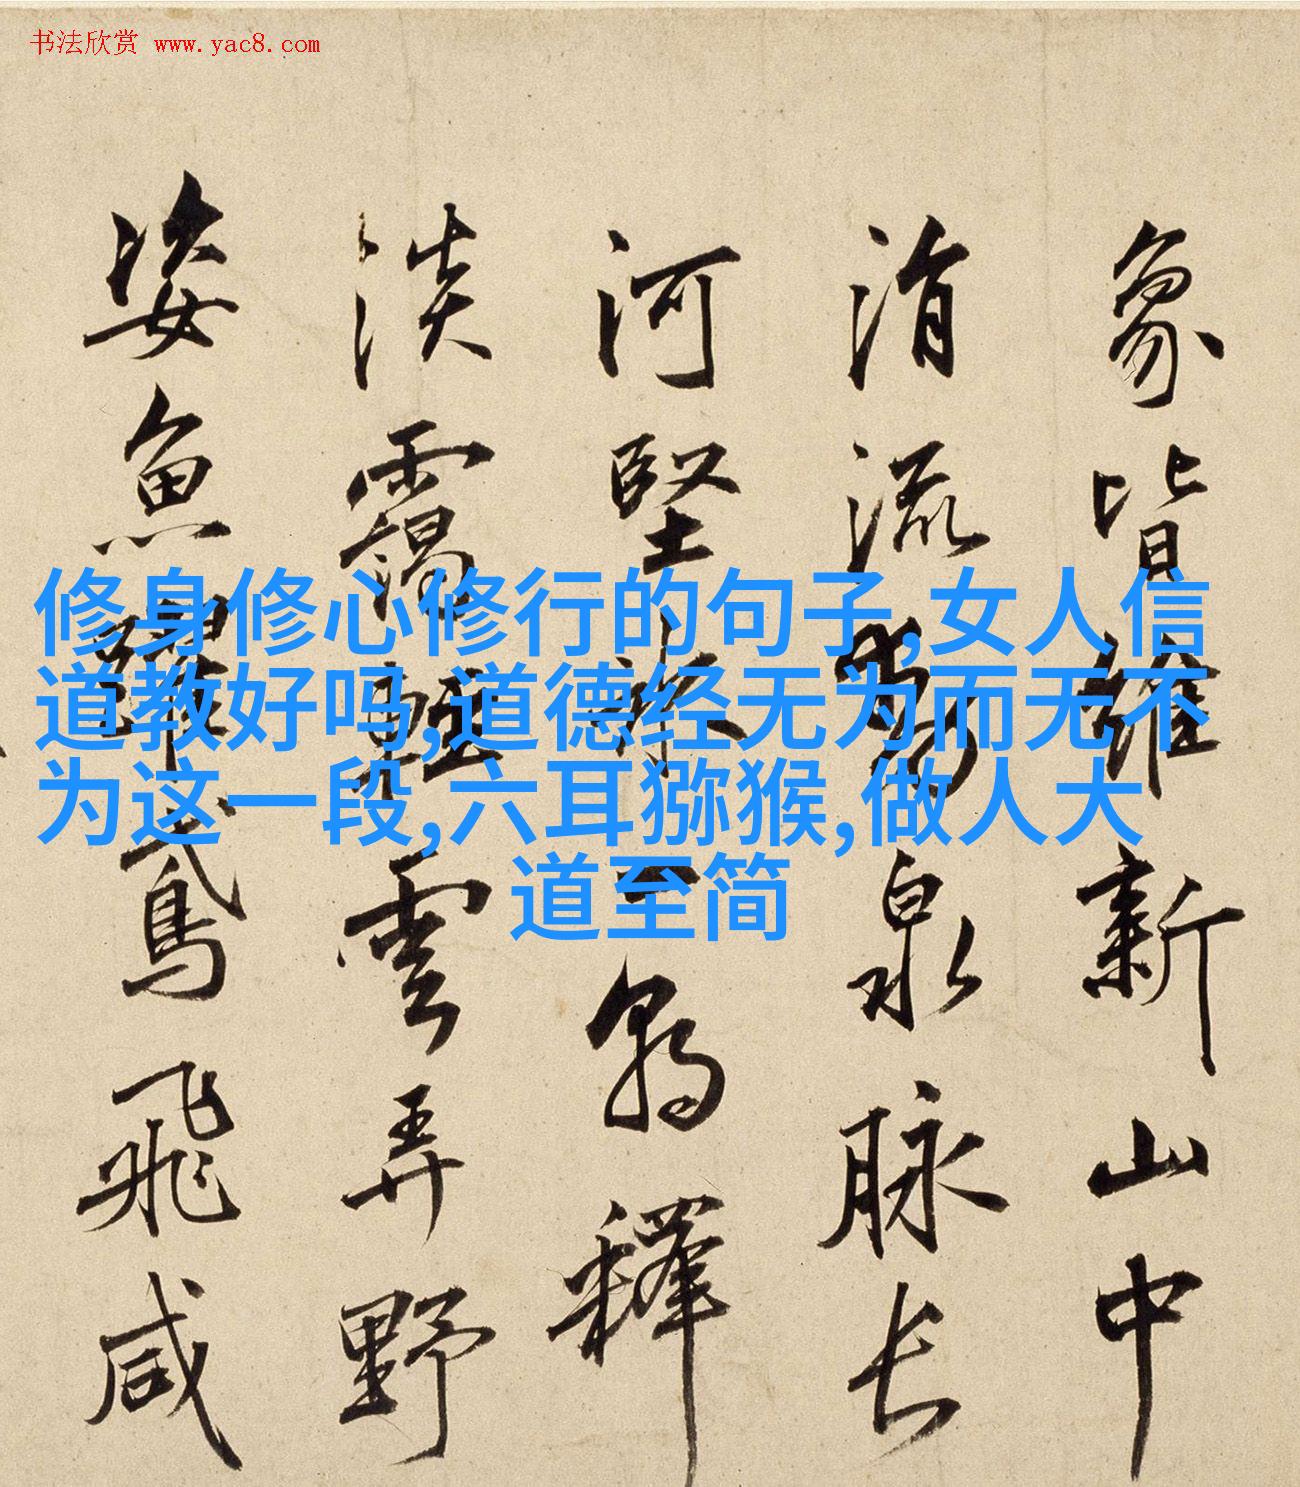 书法欣赏 www.yac8.com
修身修心修行的句子,女人信
道教好吗,道德经无为而无不
为这一段,六耳猕猴,做人大
道至简
象皆維新山中
涓流暢泉脉长
河堅冰正易釋
淡靄輕雲弄野
姿魚躍鳶飛咸